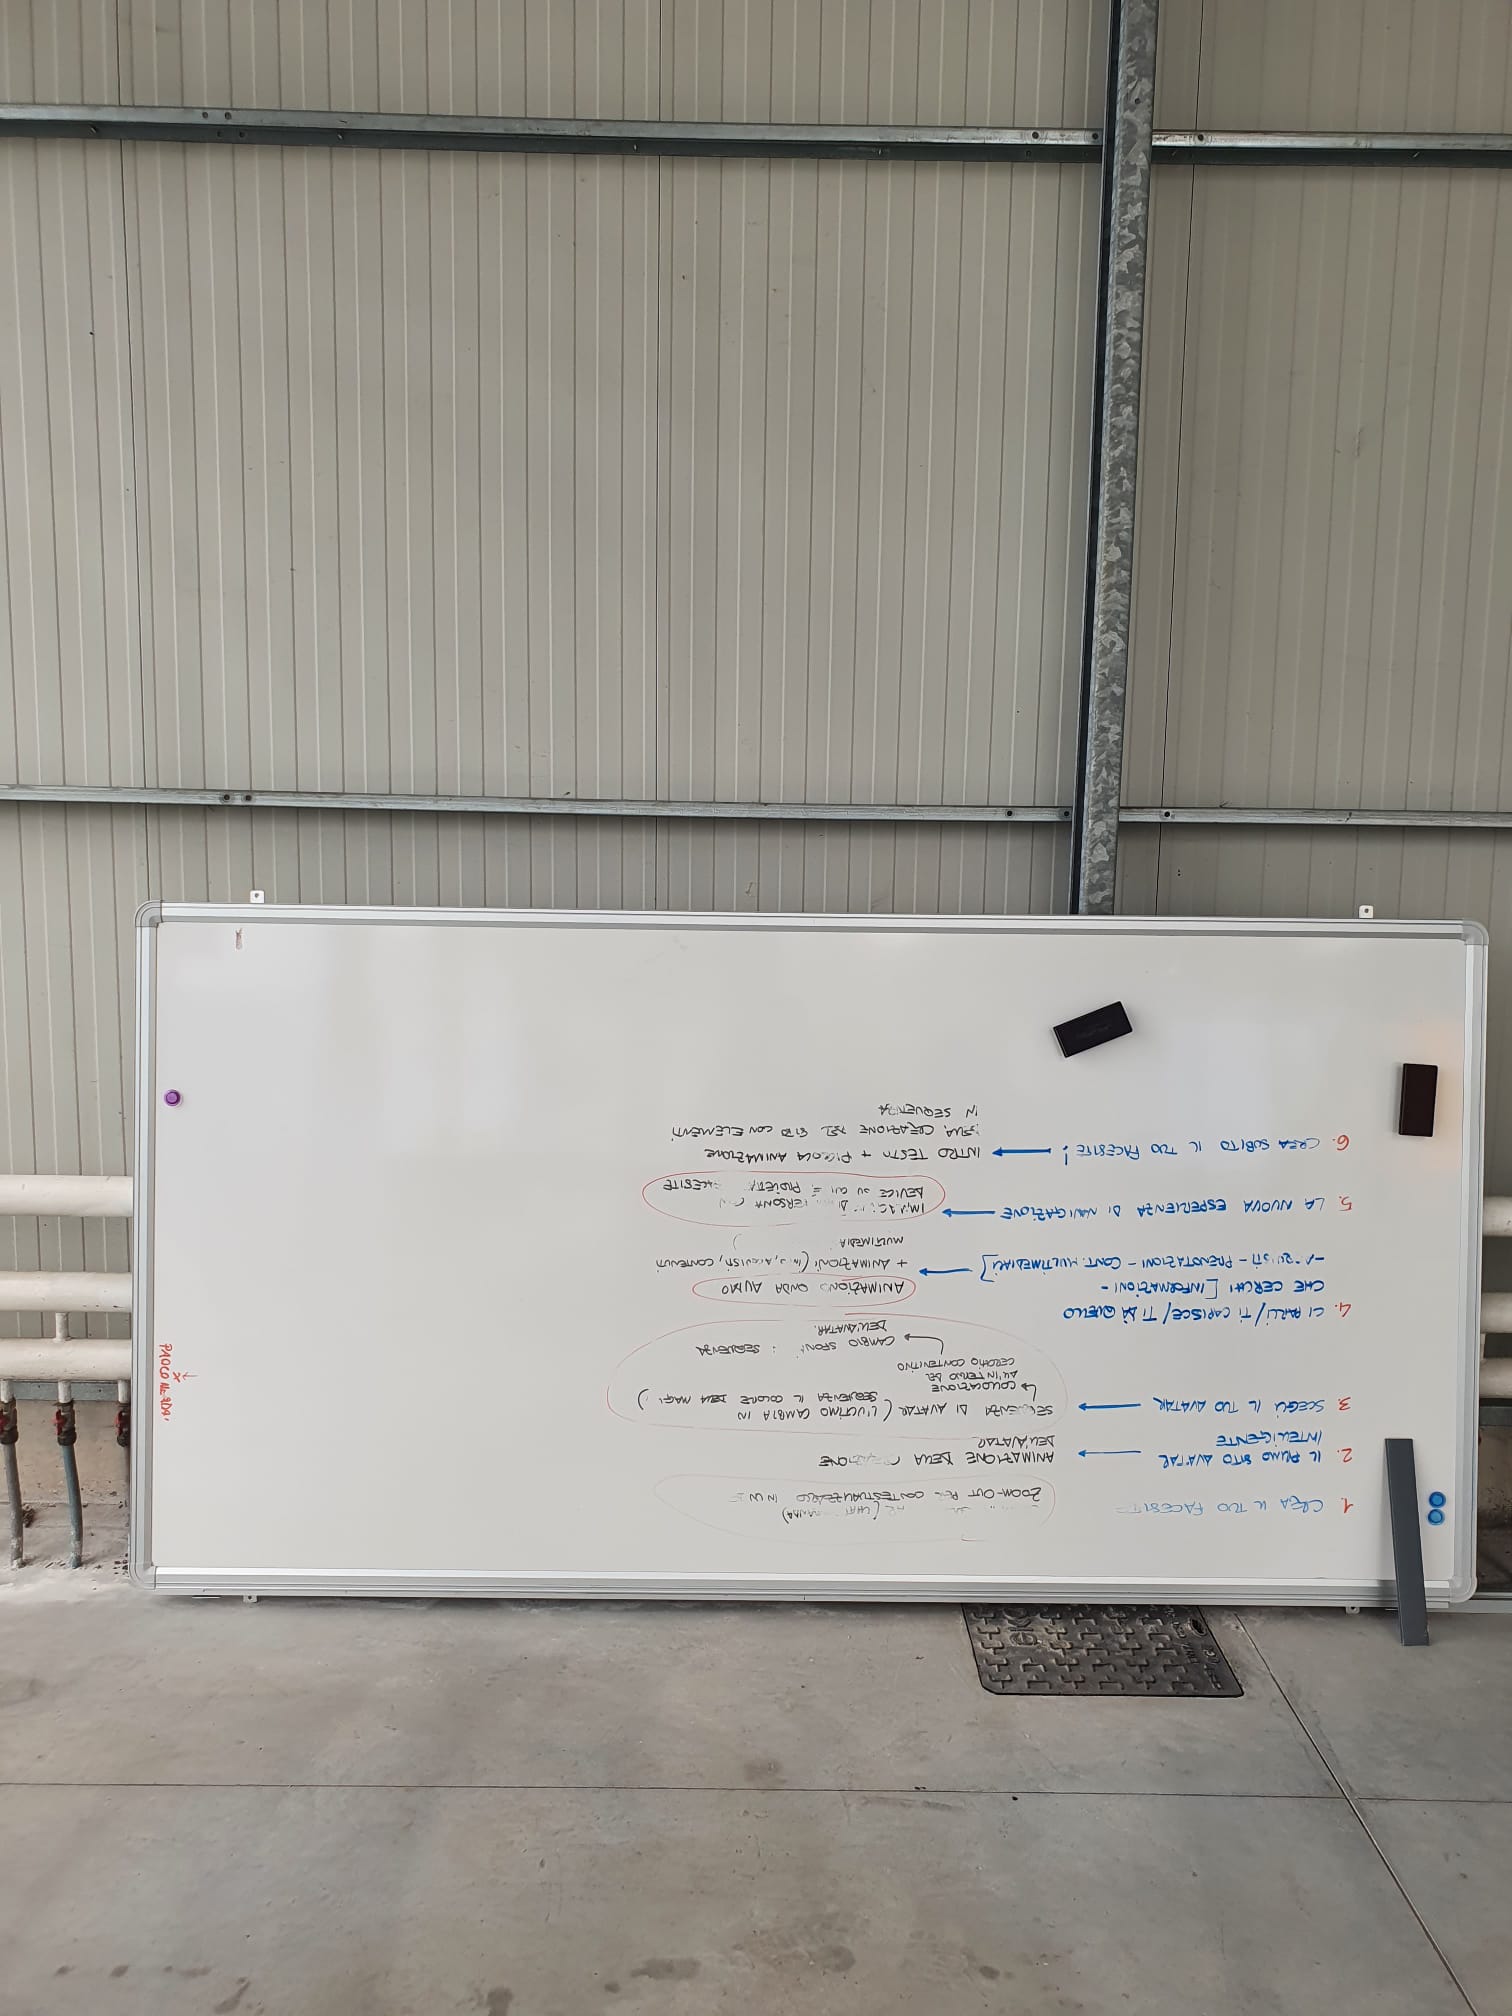 1. CREA IL TUO FACESITE
ZOOM-OUT PER CONTESTUALIZZARLO IN UN
2. IL PRIMO SITO AVATAR
INTELLIGENTE
ANIMAZIONE DELLA CREAZIONE
DELL'AVATAR
3. SCEGLI IL TUO AVATAR
SEQUENZA DI AVATAR (L'ULTIMO CAMBIA IN
SEQUENZA IL COLORE DELLA
COLLOCAZIONE
ALL'INTERNO DEL
CERCHIO CONTENITIVO
CAMBIO SFONDI : SEQUENZA
DELL'AVATAR.
4. CI PARLI/TI CAPISCE/TI DÀ QUELLO
CHE CERCHI [INFORMAZIONI -
- ACQUISTI - PRENOTAZIONI - CONT. MULTIMEDIALI]
ANIMAZIONE ONDA AUDIO
+ ANIMAZIONI (INFO, ACQUISTI, CONTENUTI
MULTIMEDIA)
5. LA NUOVA ESPERIENZA DI NAVIGAZIONE
IMMAGINE DI PERSONA CON
DEVICE SU CUI È PROIETTATO FACESITE
6. CREA SUBITO IL TUO FACESITE!
INTRO TESTO + PICCOLA ANIMAZIONE
SULLA CREAZIONE DEL SITO CON ELEMENTI
IN SEQUENZA